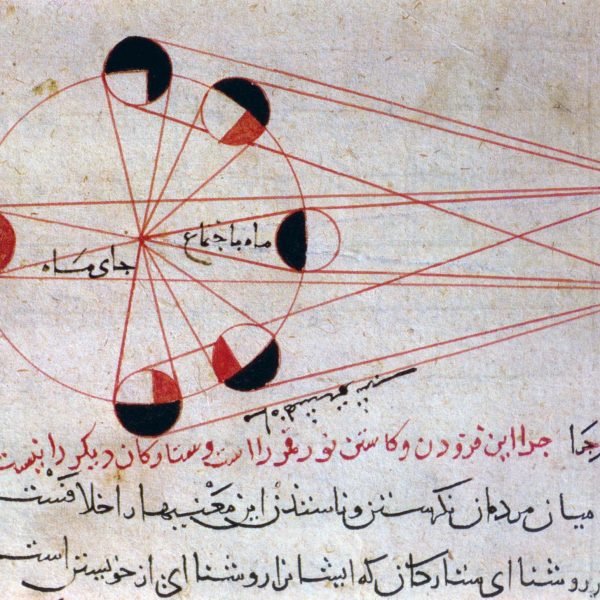 ماه باجتماع
جای ماه
جرا این فزودن و کاستن نور قمر را است و ستارکان دیکر را نیست
میان مردمان نکرستن این معنیها را خلافست
روشنا ای ستارکان که ایشانرا روشنا ای از خویشتن است